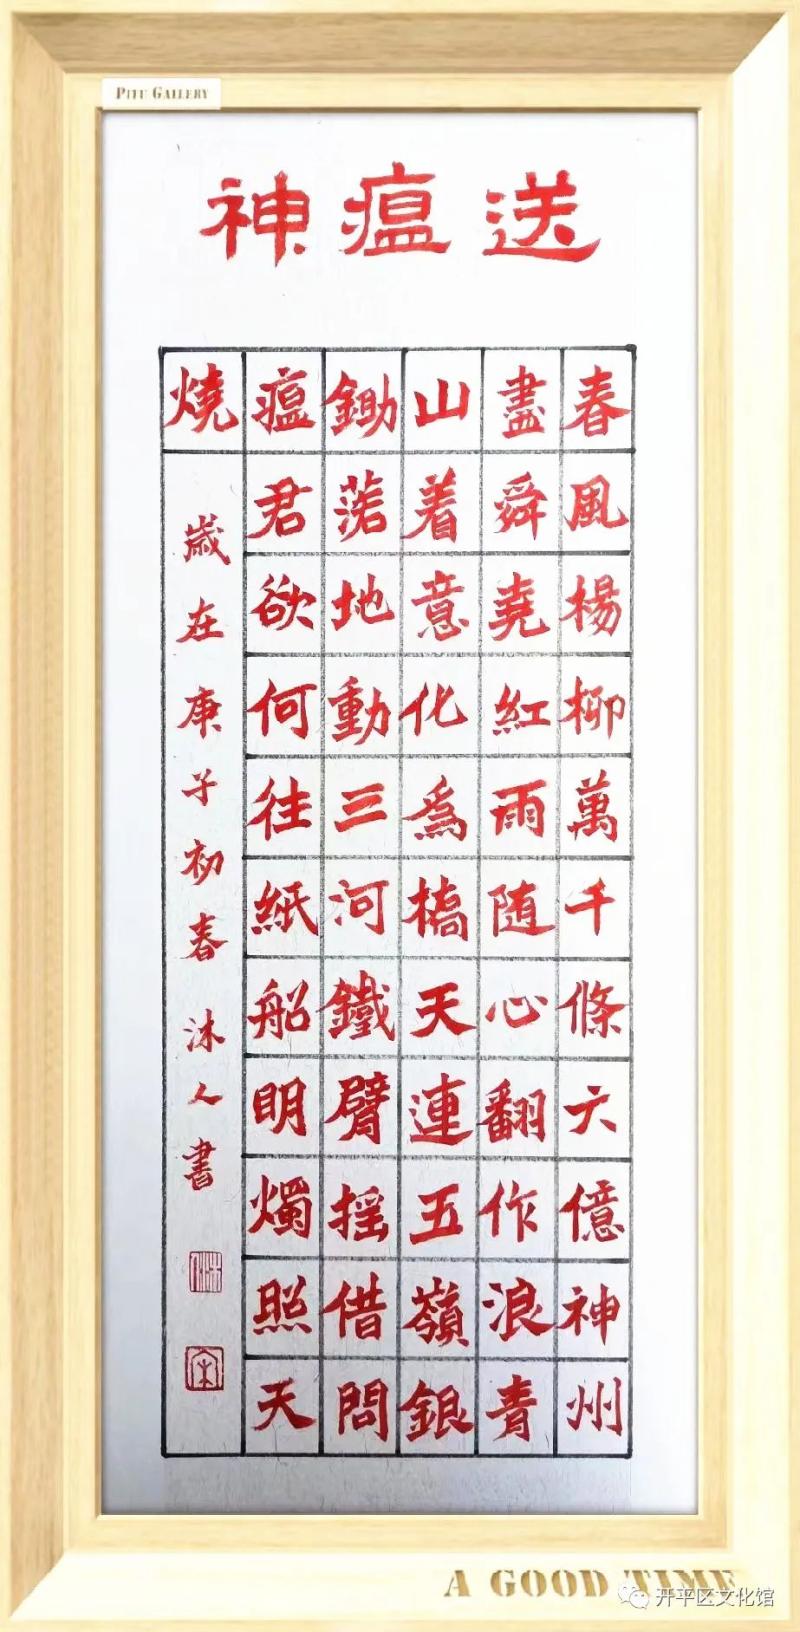 PITE GALLERY
送瘟神
春風楊柳萬千條六億神州
盡舜堯紅雨随心翻作浪青
山着意化爲橋天連五嶺銀
鋤落地動三河鐵臂摇借問
瘟君欲何往紙船明燭照天
燒
歲在庚子初春沐人書
A GOOD TIME
开平区文化馆